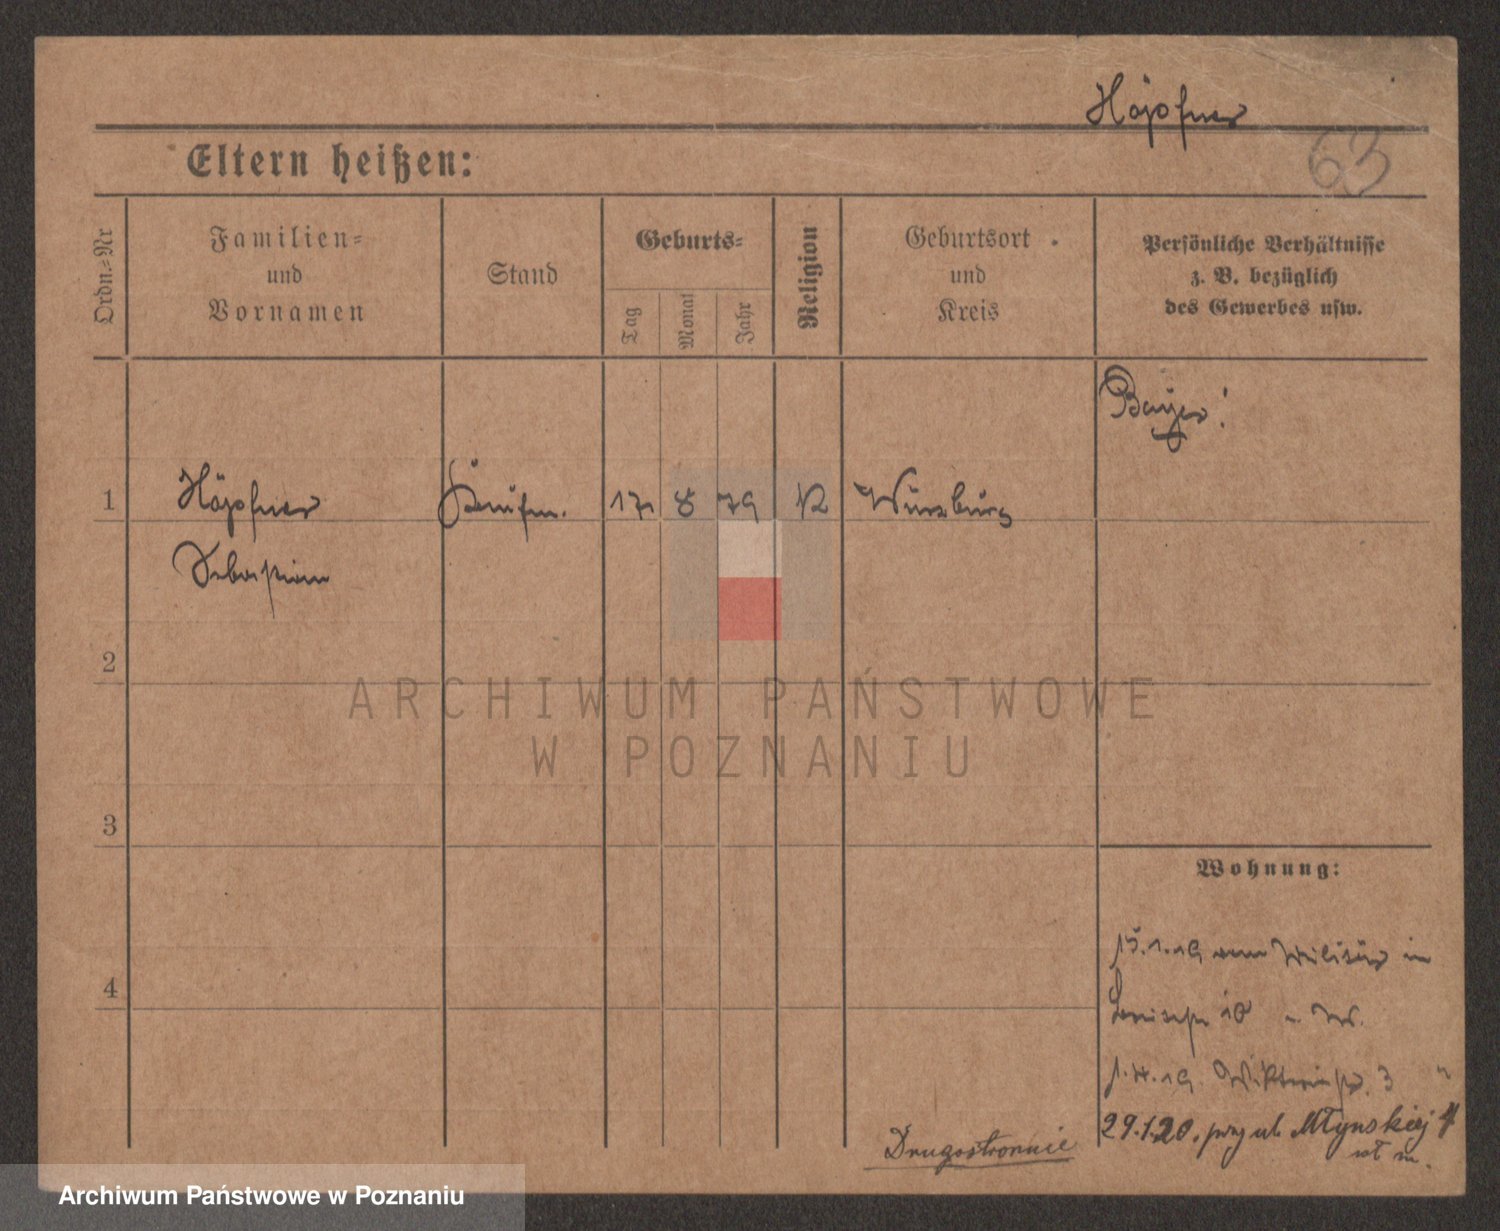 Höpfner
Eltern heißen:
63
Ordn.-Nr
Familien-
und
Vornamen
Stand
Geburts-
Tag
Monat
Jahr
Religion
Geburtsort
und
Kreis
Persönliche Verhältnisse
z. B. bezüglich
des Gewerbes usw.
Bayer!
1
Höpfner
Kaufm.
17
8
79
K
Würzburg
Sebastian
2
ARCHIWUM PAŃSTWOWE
W POZNANIU
3
Wohnung:
15.1.19 vom Militär in
4
18
1.4.19. Viktoriastr. 3 "
29.1.20. przy ul. Młyńskiej 4
Drugostronnie
Archiwum Państwowe w Poznaniu